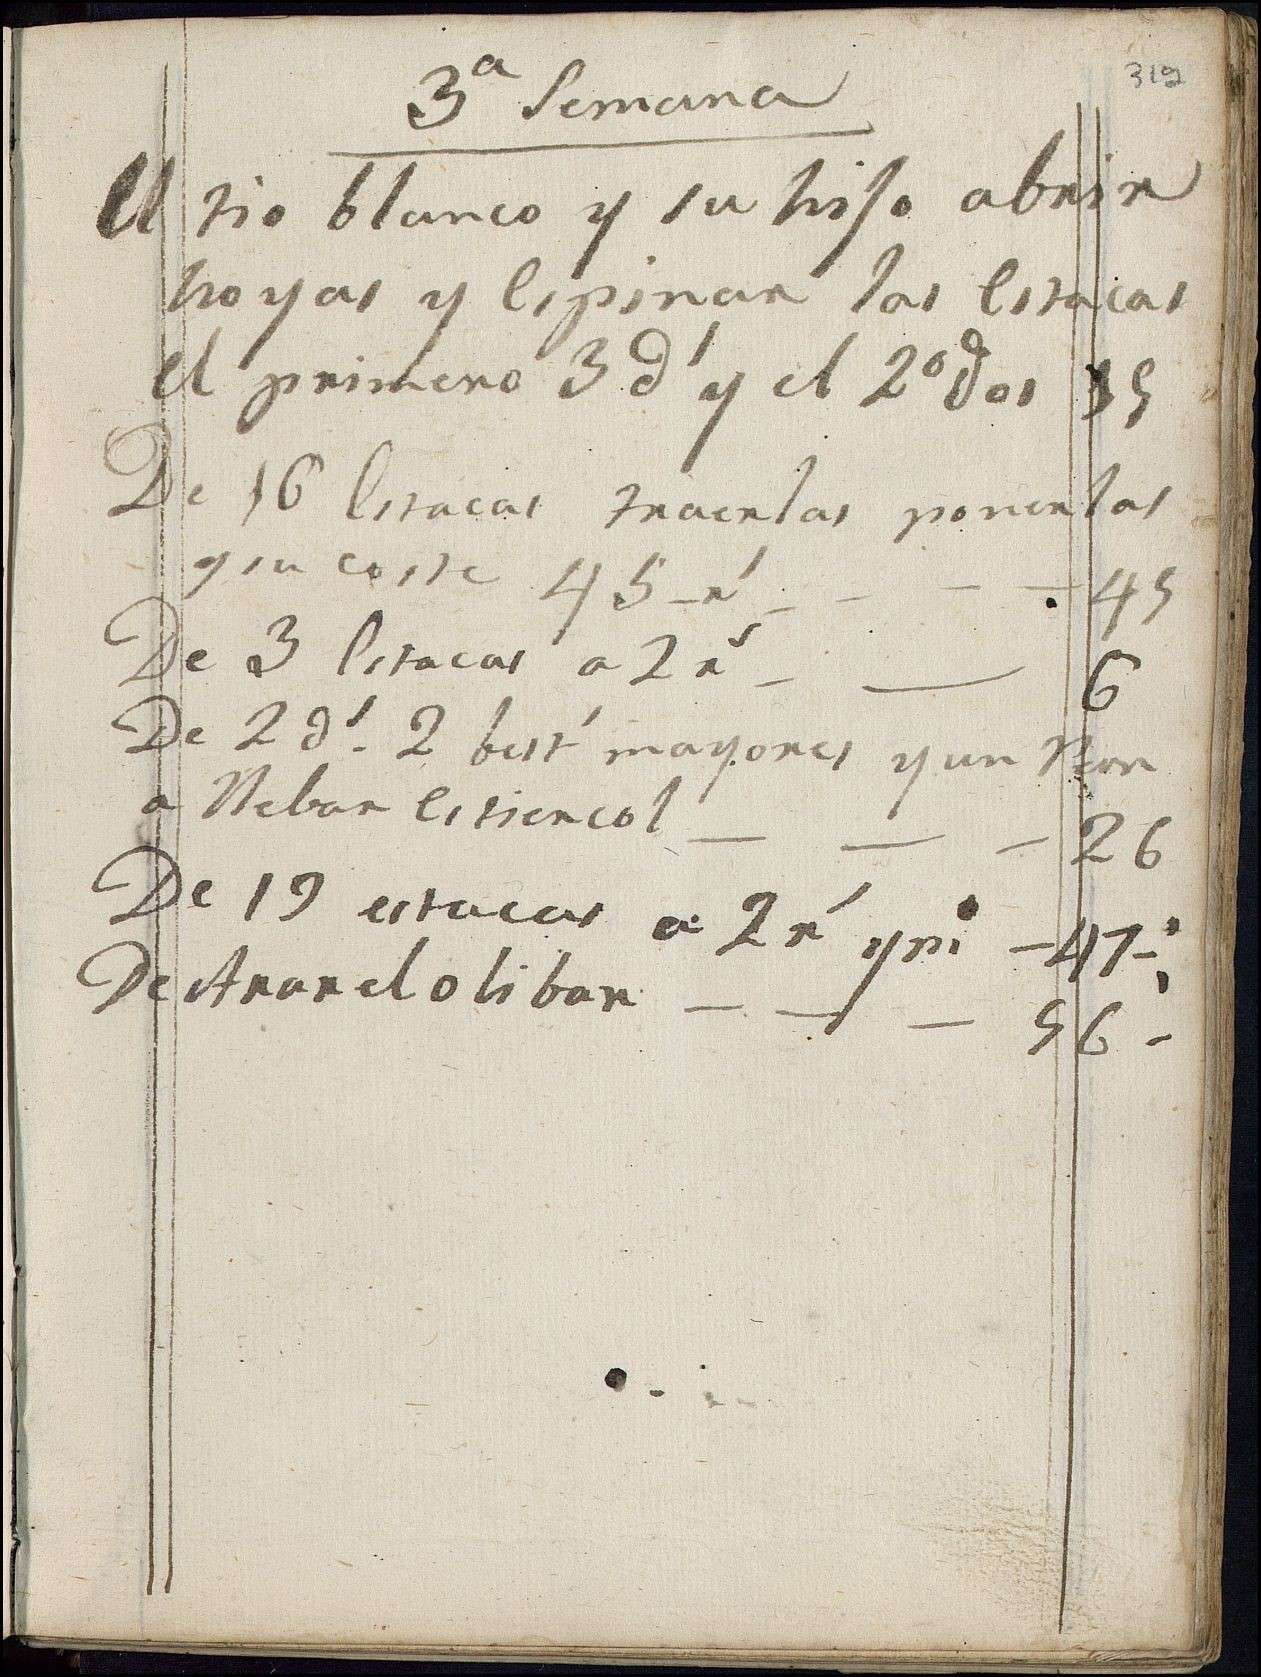 319
3ª Semana
El tio blanco y su hijo abrir
hoyas y Espinar las Estacas
el primero 3 ds y el 2º dos 35
De 16 Estacas traerlas ponerlas
y su coste 45 rs — — — 45
De 3 Estacas a 2 rs — — 6
De 2 ds. 2 best mayores y un Peon
a llebar Estiercol — — — 26
De 19 estacas a 2 rs y m — 47-
De Arar el olibar — — — 56-